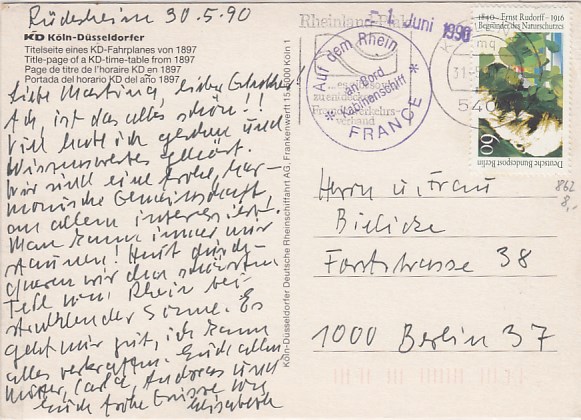 Rüdesheim 30.5.90
KD Köln-Düsseldorfer
Titelseite eines KD-Fahrplanes von 1897
Title-page of a KD-time-table from 1897
Page de titre de l'horaire KD en 1897
Portada del horario KD del año 1897
Liebe Martina, lieber
Ach, ist das alles schön!!
Viel habe ich gesehen und
Wissenswertes gehört.
Wir sind eine frohe, har-
monische Gemeinschaft
an allem interessiert!
Man kann immer nur
staunen! Heut durch-
queren wir den schönsten
Teil vom Rhein bei
strahlender Sonne. Es
geht mir gut, ich kann
alles verkraften. Euch allen
Mutter, Carla, Andreas und
Euch frohe Grüsse
Elisabeth
Köln-Düsseldorfer Deutsche Rheinschiffahrt AG, Frankenwerft 15, 5000 Köln 1
Rheinland-Pfalz
-1. Juni 1990
Auf dem Rhein
an Bord
Kabinenschiff
* FRANCE *
verband
31.5
540
1840 - Ernst Rudorff - 1916
Begründer des Naturschutzes
60
Deutsche Bundespost Berlin
862
8,-
Herrn u. Frau
Bielicke
Forststrasse 38
1000 Berlin 37